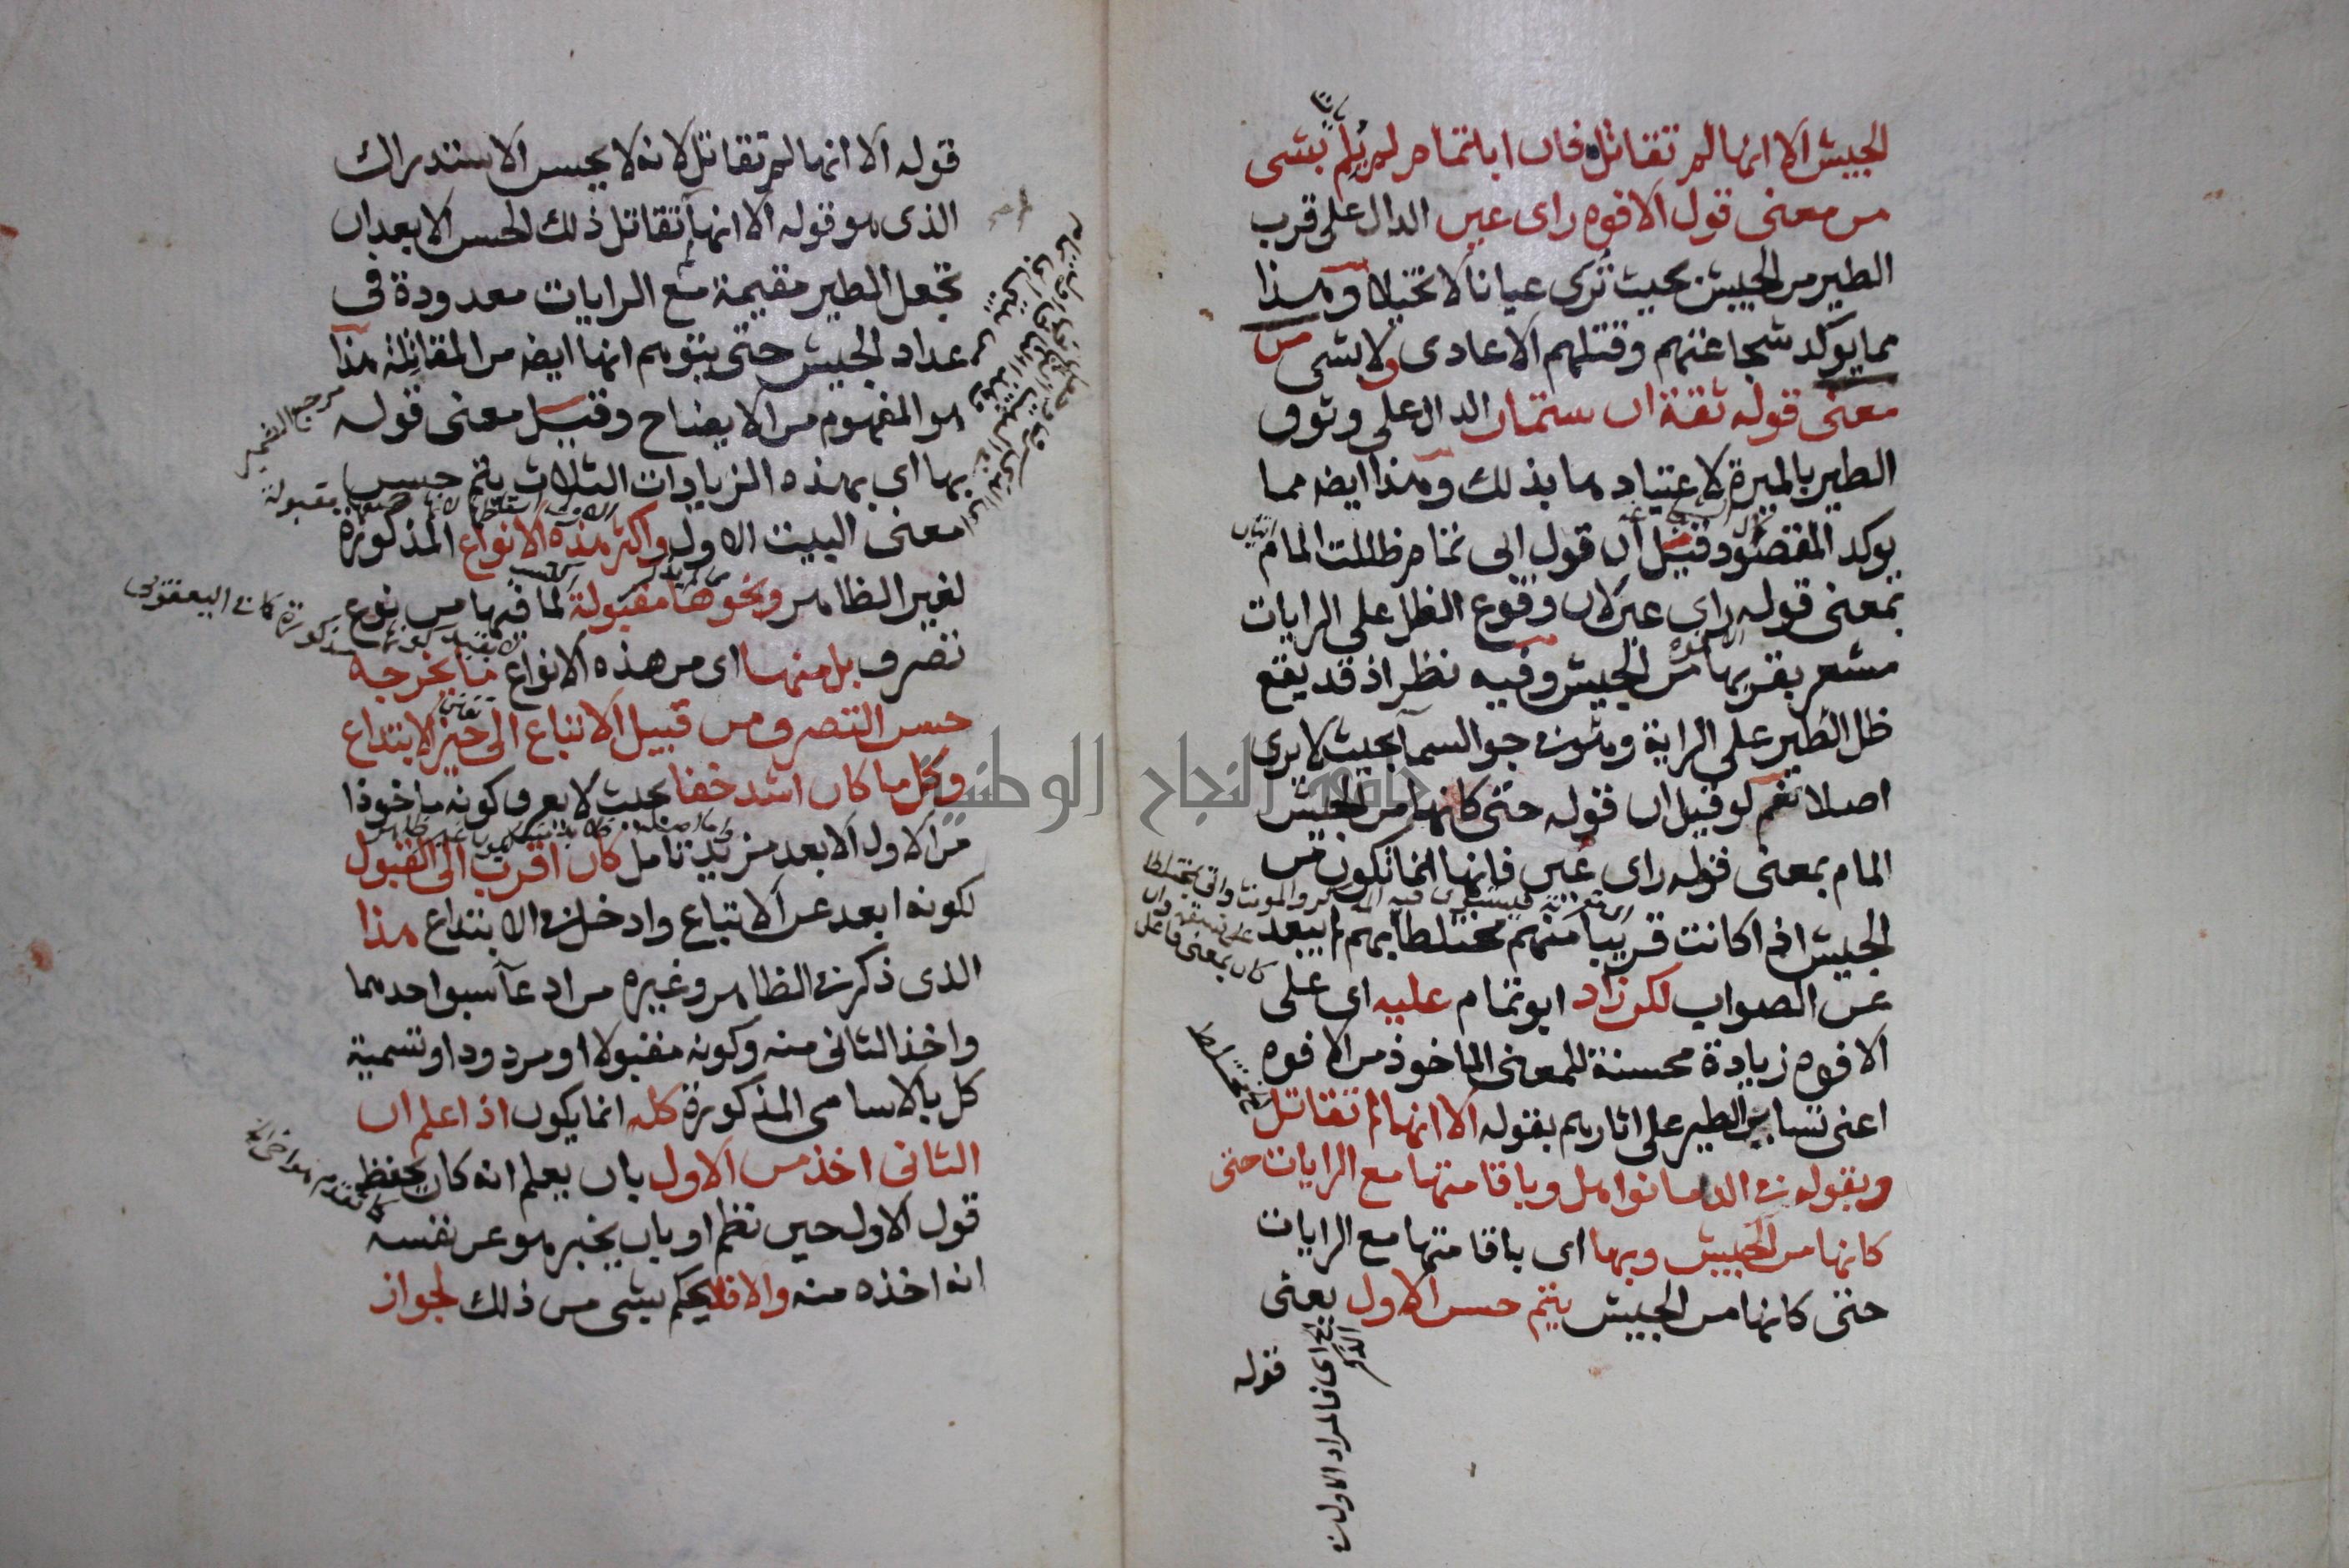 الجيش الا انها لم تقاتل فان ابا تمام لم يلم بشى
من معنى قول الافوه راى عين الدال على قرب
الطير من الجيش بحيث ترى عيانا لا تخيلا وهذا
مما يوكد شجاعتهم وقتلهم الاعادى ولا بشى من
معنى قوله ثقة ان ستمار الدال على وثوق
الطير بالميرة لاعتيادها بذلك وهذا ايضه مما
يوكد المقصود وقيل ان قول ابى تمام ظللت المام
بمعنى قوله راى عين لان وقوع الظل على الرايات
مشعر بقربها من الجيش وفيه نظر اذ قد يقع
ظل الطير على الراية وهو فى جو السما بحيث لا يرى
اصلا نعم لو قيل ان قوله حتى كانها من الجيش
المام بمعنى قوله راى عين فانها انما تكون من
الجيش اذا كانت قريبا منهم مختلطا بهم لم يبعد
عن الصواب لكن زاد ابو تمام عليه اى على
الافوه زيادة محسنة للمعنى الماخوذ من الافوه
اعنى تساير الطير على اثارهم بقوله الا انها لم تقاتل
وبقوله فى الدما نواهل وباقامتها مع الرايات حتى
كانها من الجيش وبها اى باقامتها مع الرايات
حتى كانها من الجيش يتم حسن الاول يعنى
قوله
قوله الا انها لم تقاتل لانه لا يحسن الاستدراك
الذى هو قوله الا انها لم تقاتل ذلك الحسن الا بعد ان
تجعل الطير مقيمة مع الرايات معدودة فى
عداد الجيش حتى يتوهم انها ايضه من المقاتلة هذا
هو المفهوم من الايضاح وقيل معنى قوله
بها اى بهذه الزيادات الثلاث يتم حسن
معنى البيت الاول واكثر هذه الانواع المذكورة
لغير الظاهر ونحوها مقبولة لما فيها من نوع
تصرف بل منها اى من هذه الانواع ما يخرجه
حسن التصرف من قبيل الاتباع الى حيز الابتداع
وكل ما كان اشد خفا بحيث لا يعرف كونه ماخوذا
من الاول الا بعد مزيد تامل كان اقرب الى القبول
لكونه ابعد عن الاتباع وادخل فى الابتداع هذا
الذى ذكر فى الظاهر وغيره من ادعا سبق احدهما
واخذ الثانى منه وكونه مقبولا او مردودا وتسمية
كل بالاسامى المذكورة كله انما يكون اذا علم ان
الثانى اخذ من الاول بان يعلم انه كان يحفظ
قول الاول حين نظم او بان يخبر هو عن نفسه
انه اخذه منه والا فلا يحكم بشى من ذلك لجواز
مرجع الضمير
جامعة النجاح الوطنية